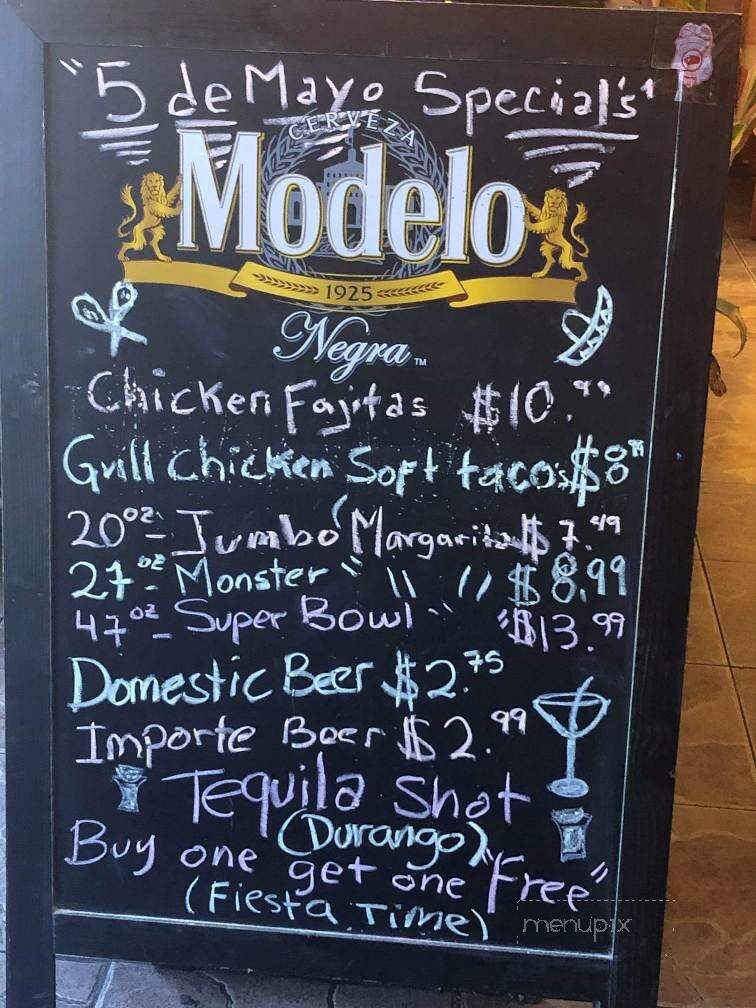 "5 de Mayo Special's"
CERVEZA
Modelo
1925
Negra™
Chicken Fajitas $10.99
Grill Chicken Soft tacos $8.99
20oz- Jumbo Margarita $7.49
27oz- Monster " \\ // $8.99
47oz- Super Bowl " "$13.99
Domestic Beer $2.75
Importe Beer $2.99
Tequila Shot
(Durango)
Buy one get one "Free"
(Fiesta Time)
menupix